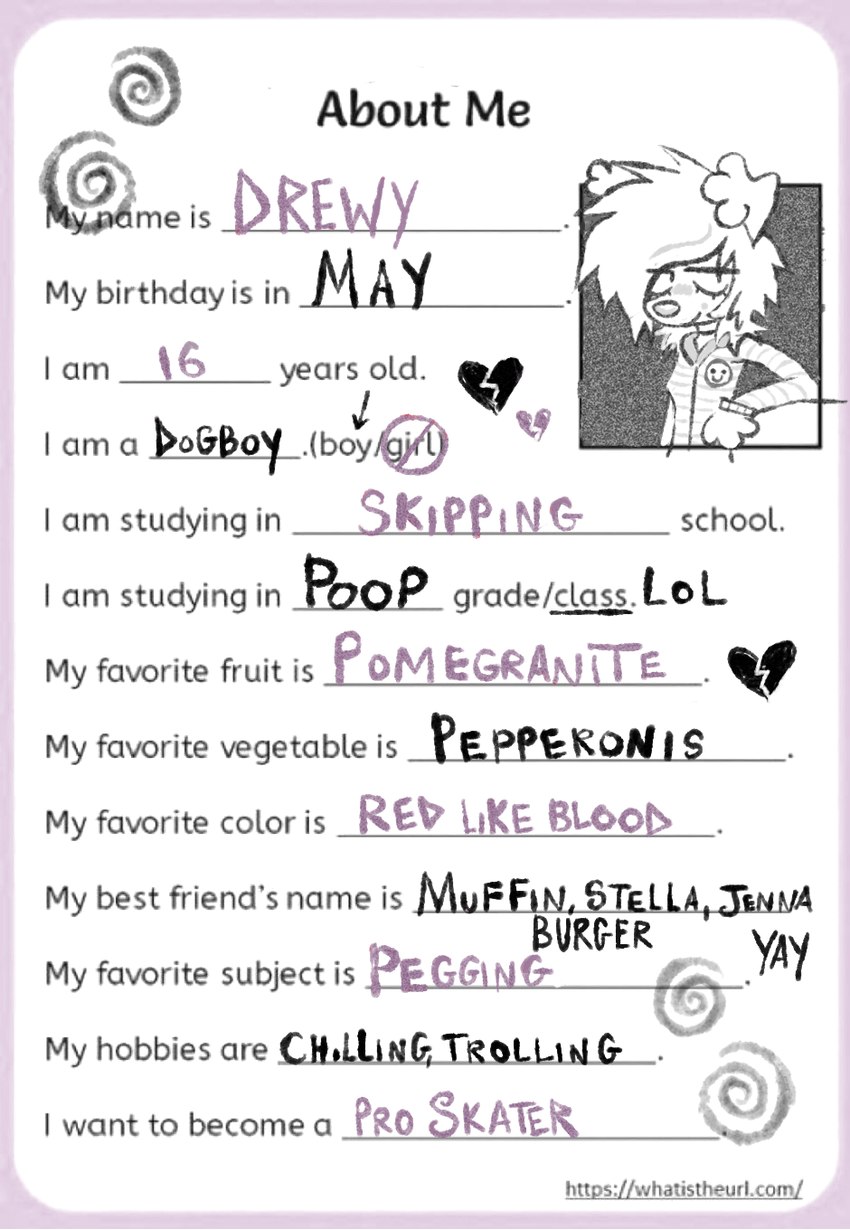 About Me
My name is DREWY.
My birthday is in MAY.
I am 16 years old.
I am a DOGBOY.(boy/girl)
I am studying in SKIPPING school.
I am studying in POOP grade/class. LOL
My favorite fruit is POMEGRANITE.
My favorite vegetable is PEPPERONIS.
My favorite color is RED LIKE BLOOD.
My best friend's name is MUFFIN, STELLA, JENNA
BURGER
YAY
My favorite subject is PEGGING.
My hobbies are CHILLING, TROLLING.
I want to become a PRO SKATER.
https://whatistheurl.com/